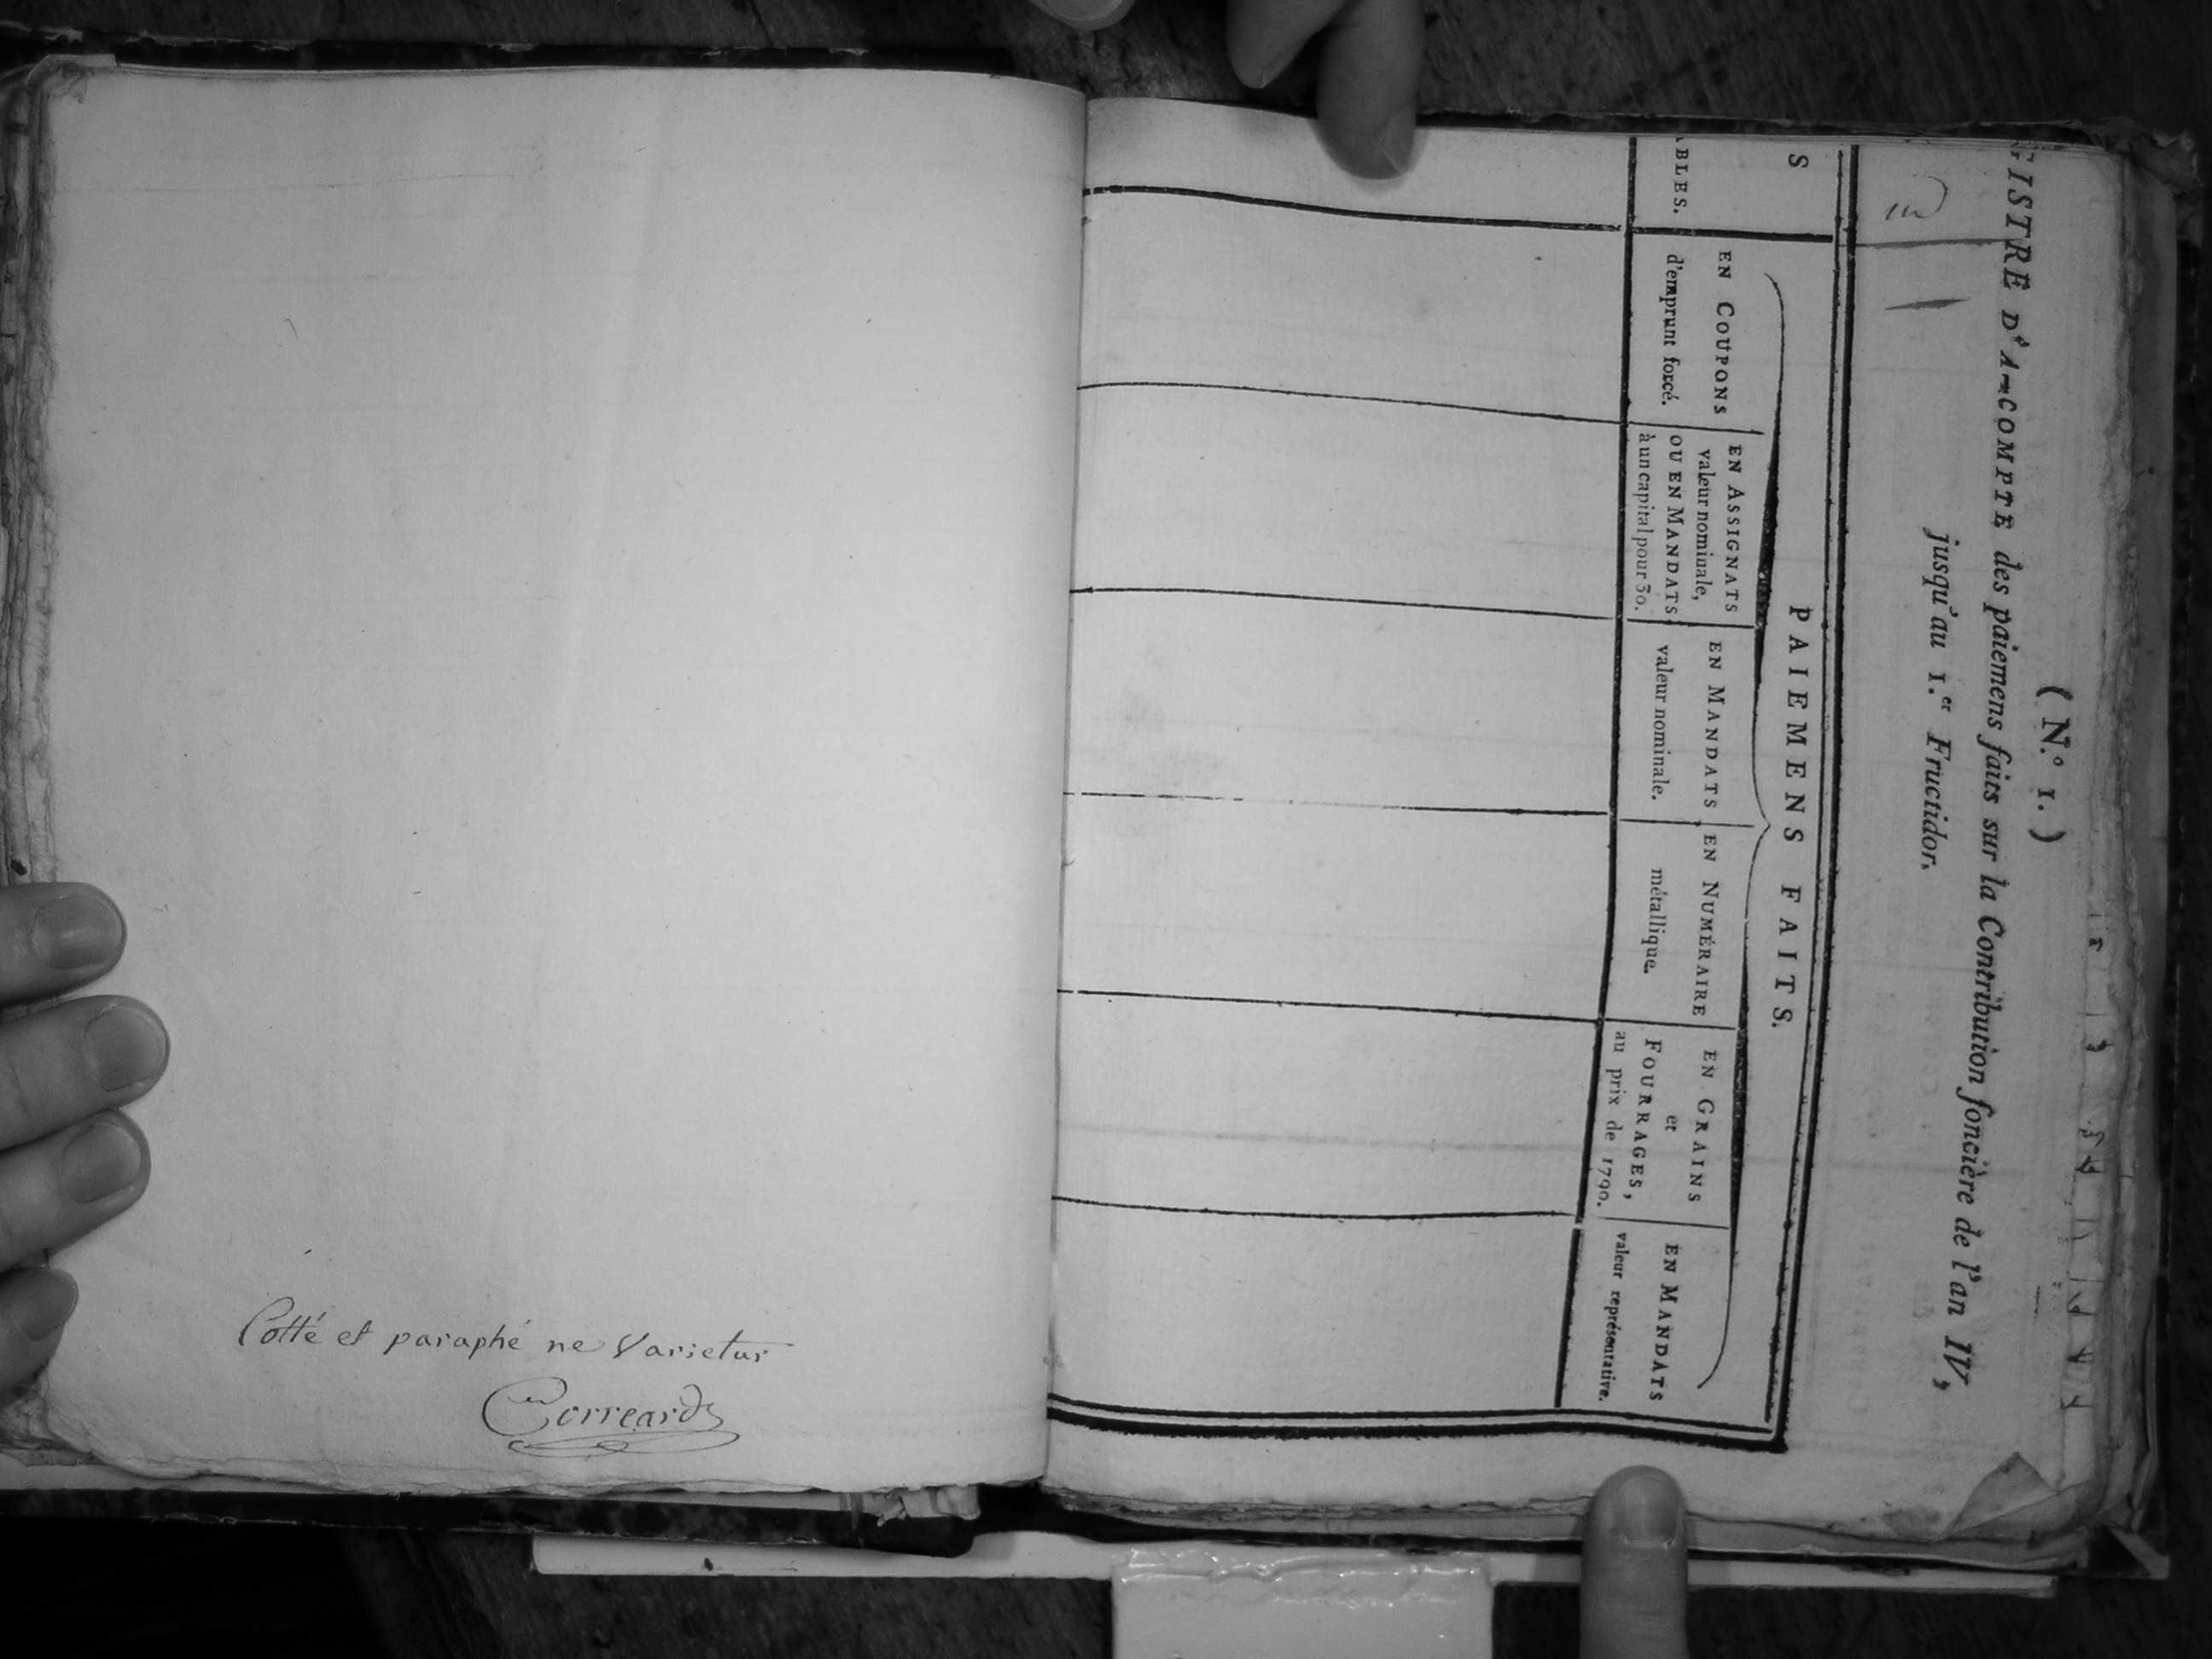 Cotté et paraphé ne Varietur
Correard
(N.º 1.)
GISTRE D'A-COMPTE des paiemens faits sur la Contribution foncière de l'an IV,
jusqu'au 1.er Fructidor.
S
PAIEMENS FAITS.
ABLES.
EN COUPONS
d'emprunt forcé.
EN ASSIGNATS
valeur nominale,
OU EN MANDATS
à un capital pour 30.
EN MANDATS
valeur nominale.
EN NUMÉRAIRE
métallique.
EN GRAINS
et
FOURRAGES,
au prix de 1790.
EN MANDATS
valeur représentative.